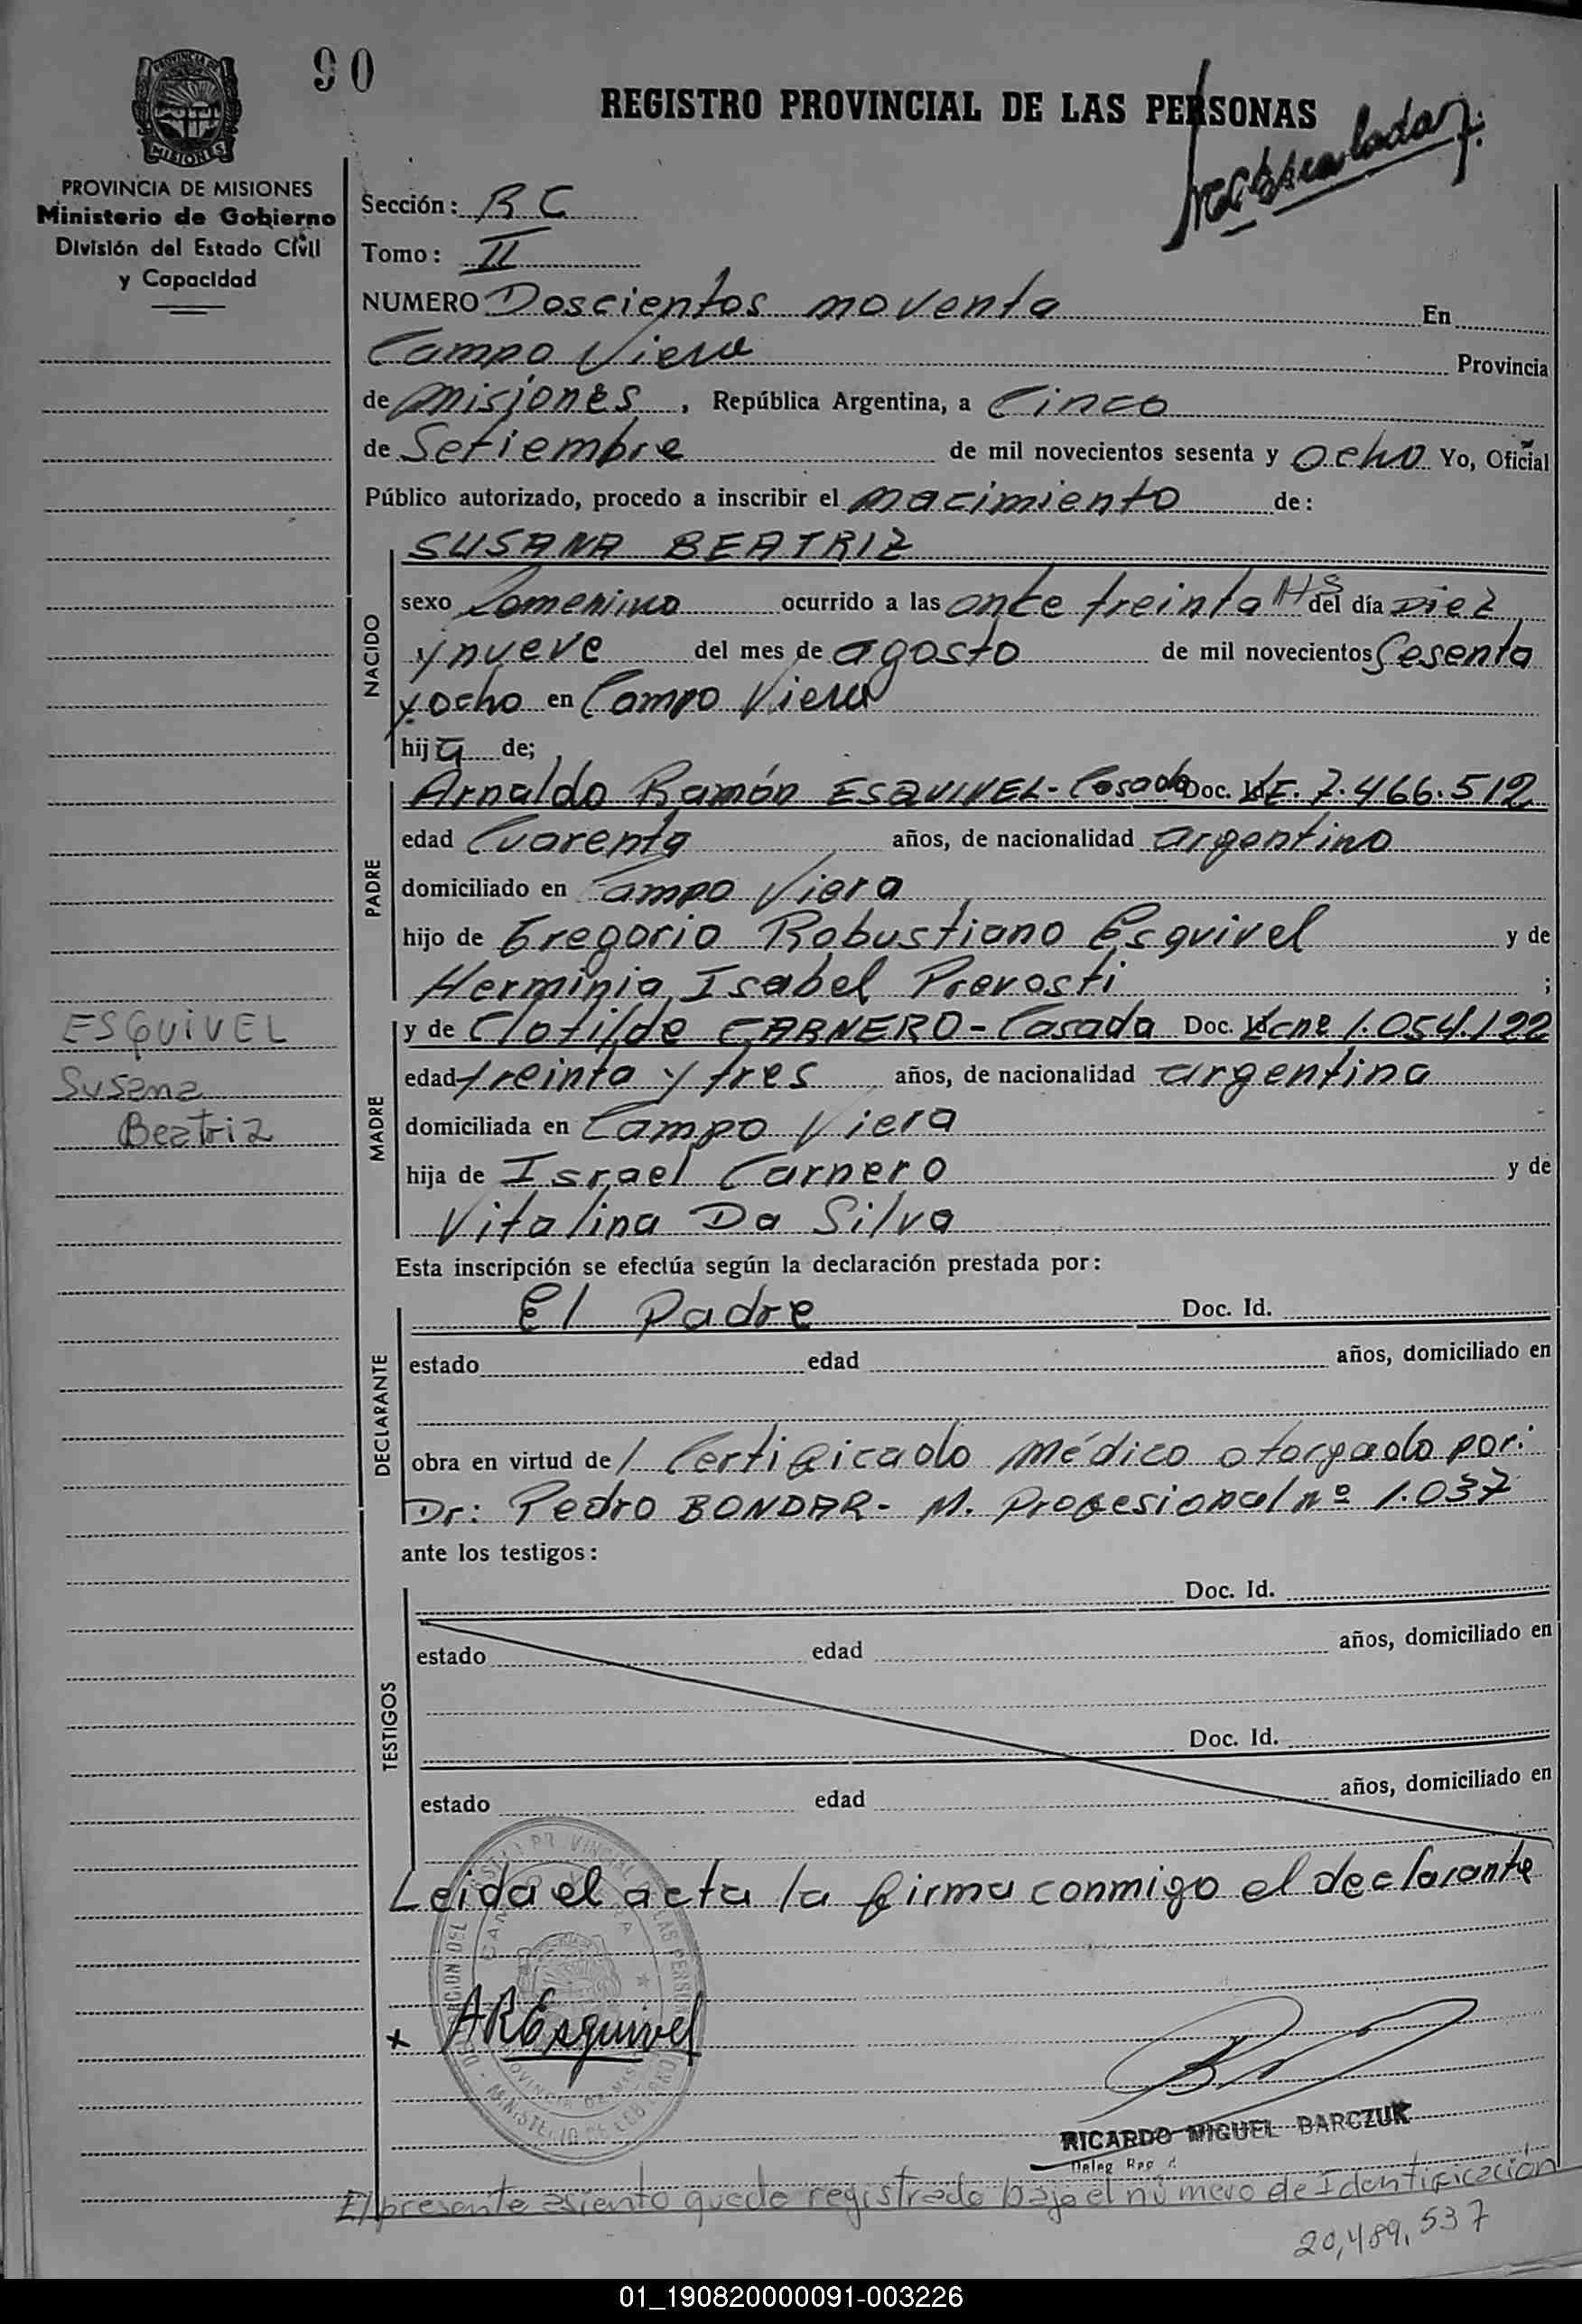 90
REGISTRO PROVINCIAL DE LAS PERSONAS
MISIONES
PROVINCIA DE MISIONES
Ministerio de Gobierno
División del Estado Civil
y Capacidad
Sección: RC
Tomo: II
NUMERO Doscientos noventa En
Campo Viera Provincia
de Misiones, República Argentina, a Cinco
de Setiembre de mil novecientos sesenta y ocho Yo, Oficial
Público autorizado, procedo a inscribir el nacimiento de:
NACIDO
SUSANA BEATRIZ
sexo femenino ocurrido a las once treinta Hs del día Diez
y nueve del mes de agosto de mil novecientos Sesenta
y ocho en Campo Viera
hija de;
PADRE
Arnaldo Ramón ESQUIVEL - Casado Doc. LE. 7.466.512
edad Cuarenta años, de nacionalidad argentino
domiciliado en Campo Viera
hijo de Gregorio Robustiano Esquivel y de
Herminia Isabel Prevosti ;
MADRE
y de Clotilde CARNERO - Casada Doc. Lc nº 1.054.122
edad treinta y tres años, de nacionalidad argentina
domiciliada en Campo Viera
hija de Israel Carnero y de
Vitalina Da Silva
ESQUIVEL
Susana
Beatriz
Esta inscripción se efectúa según la declaración prestada por:
DECLARANTE
El Padre Doc. Id.
estado edad años, domiciliado en
obra en virtud de 1 Certificado Médico otorgado por:
Dr: Pedro BONDAR - M. Profesional nº 1.037
ante los testigos:
TESTIGOS
Doc. Id.
estado edad años, domiciliado en
Doc. Id.
estado edad años, domiciliado en
Leida el acta la firma conmigo el declarante
x AREsquivel
RICARDO MIGUEL BARCZUK
El presente asiento quedo registrado bajo el número de Identificación
20,489,537
01_190820000091-003226